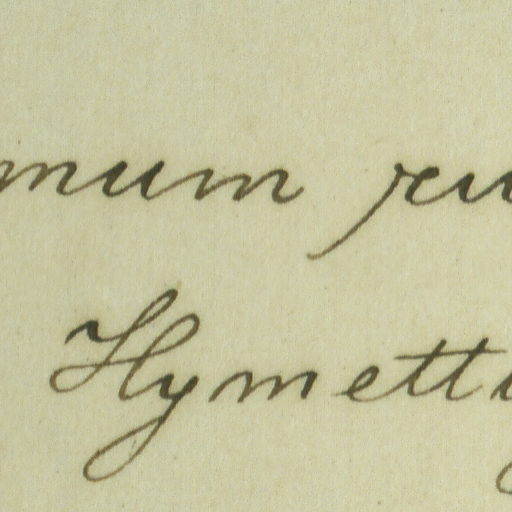 mum
Hymetti